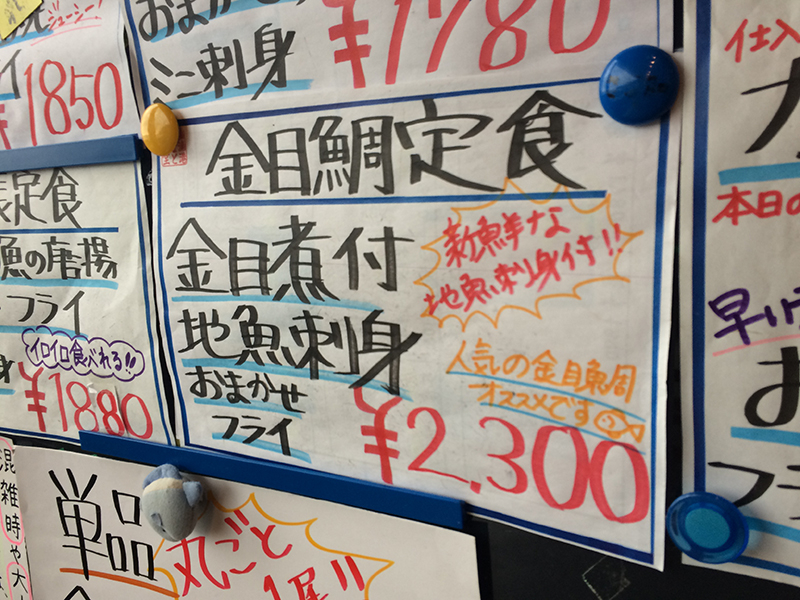 ¥1850
おまかせ
ミニ刺身
¥1780
金目鯛定食
金目煮付
地魚刺身
おまかせ
フライ
新鮮な
地魚刺身付!!
人気の金目鯛
オススメです
¥2,300
定食
魚の唐揚
フライ
イロイロ食べれる!!
¥1880
仕入
本日の
早い
お
フ
混雑時や大
単品
丸ごと
1尾!!